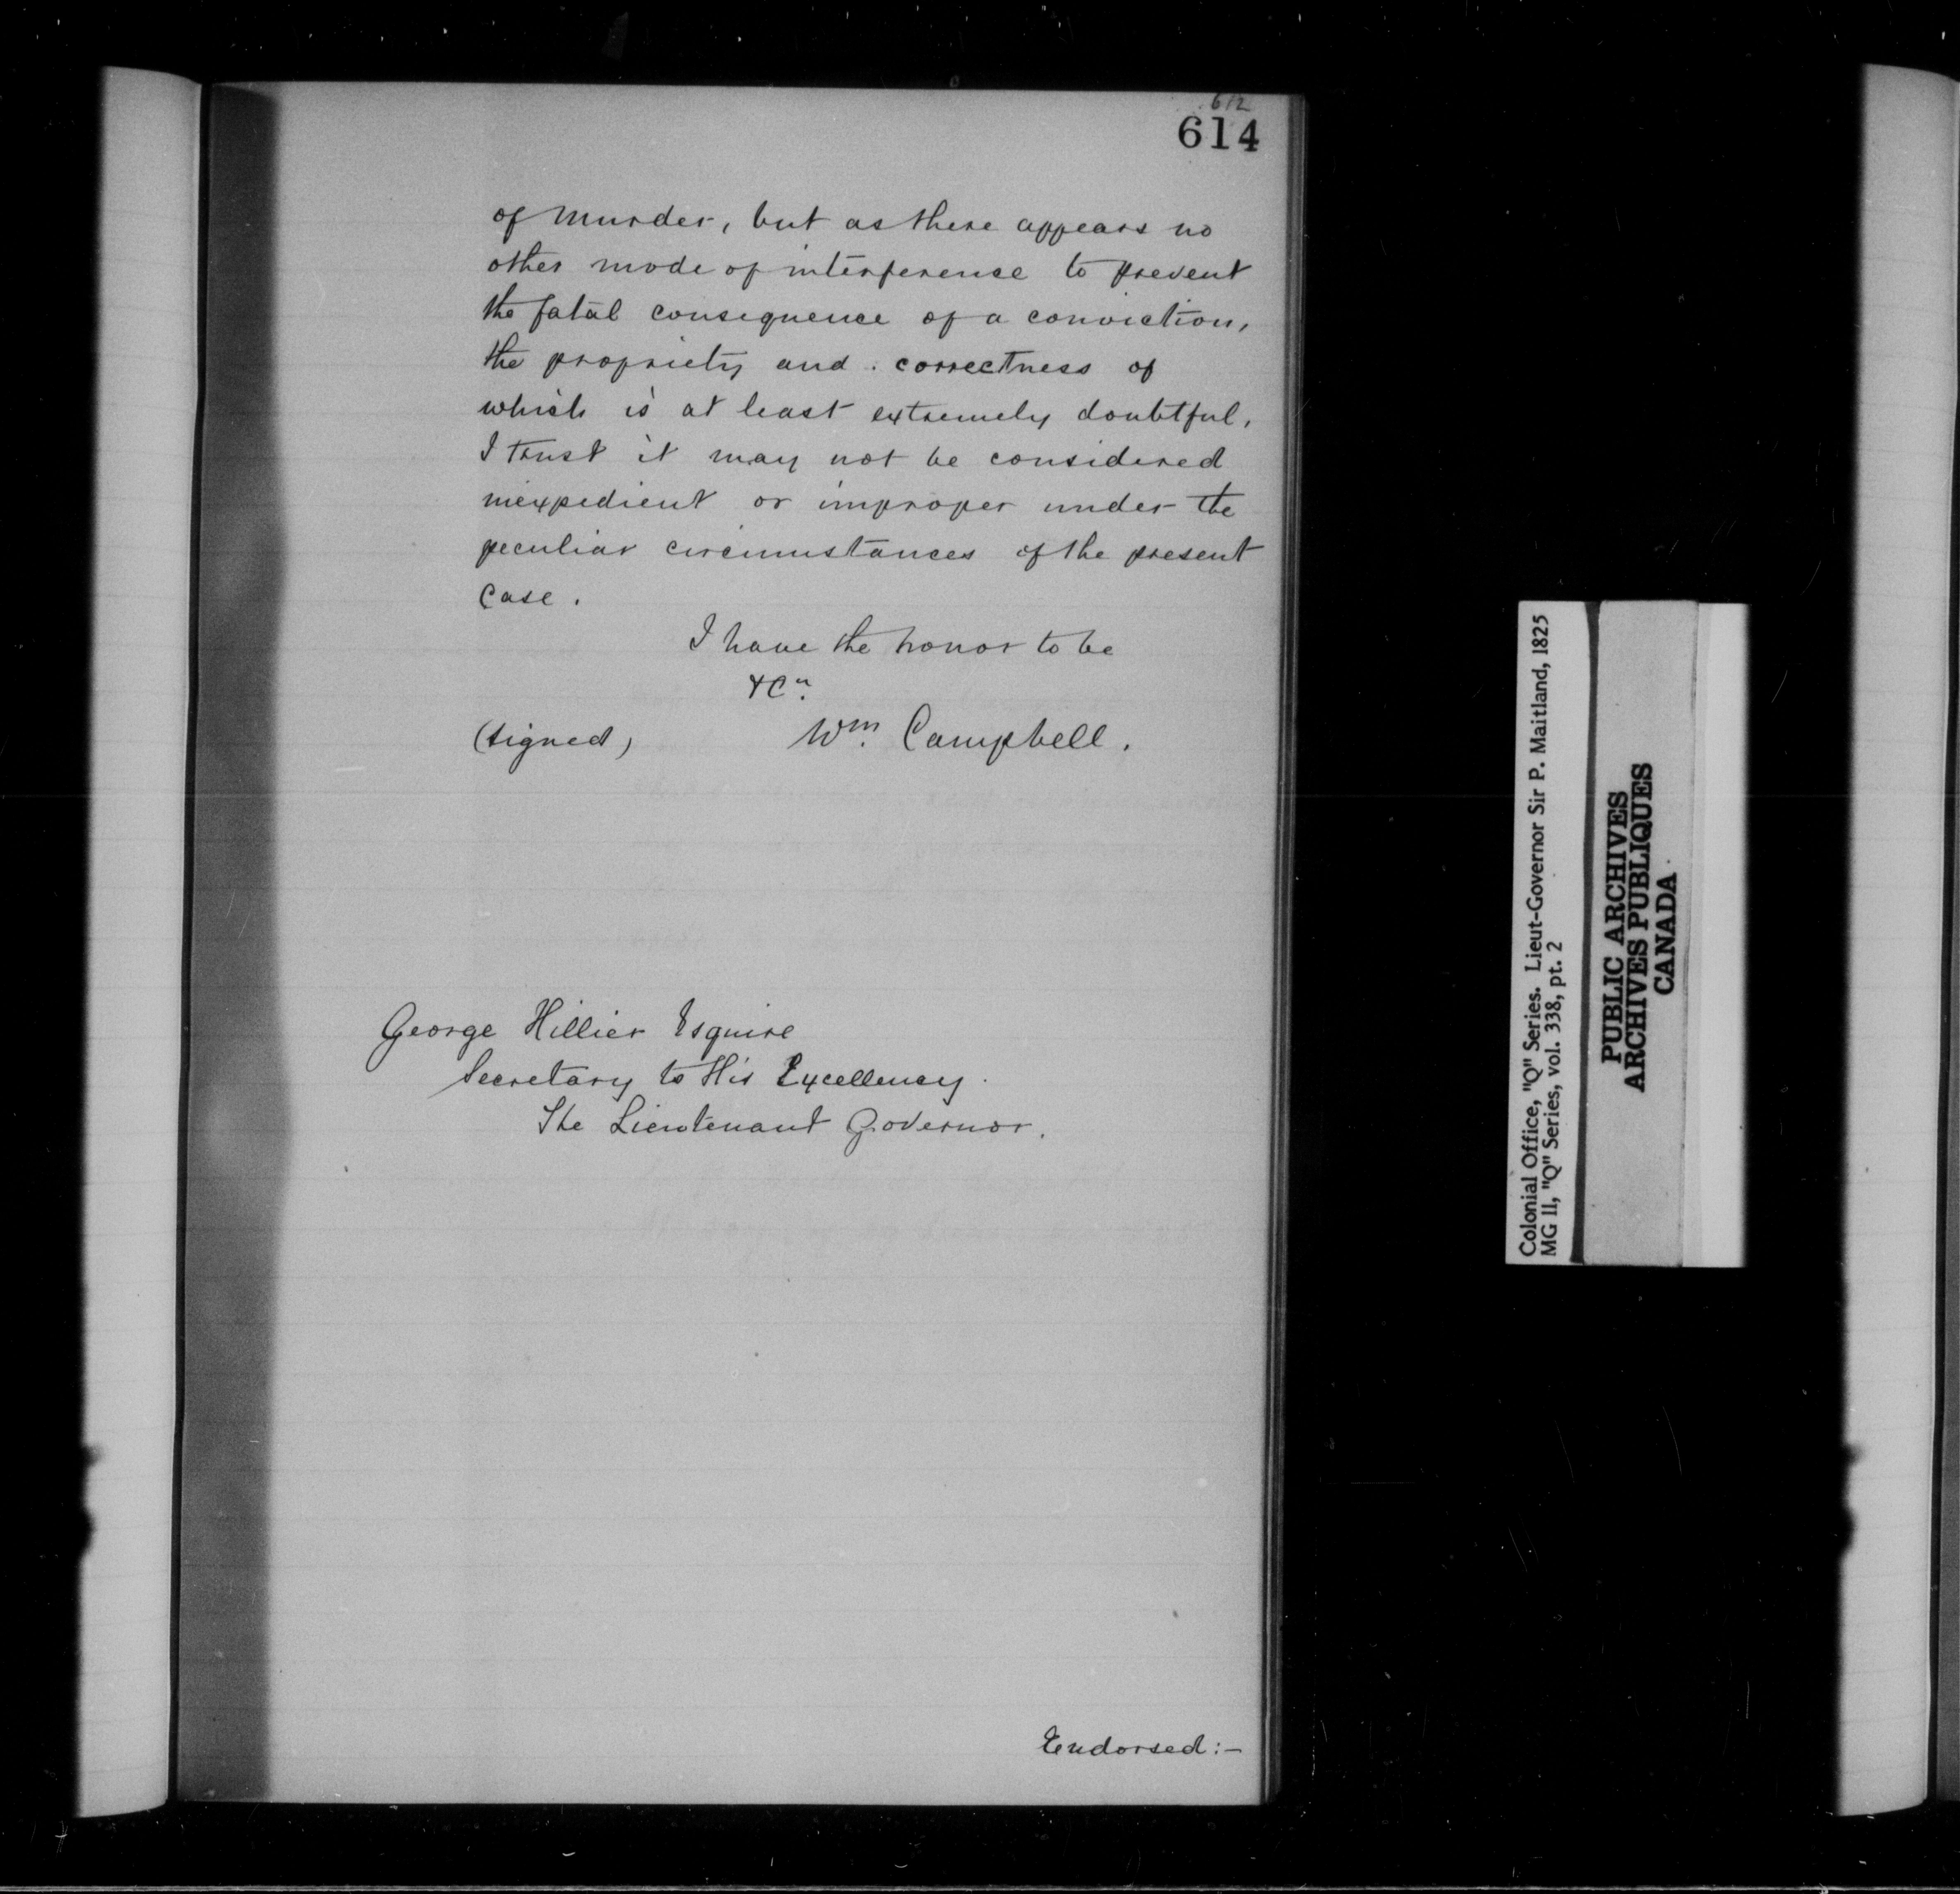 612
614
of Murder, but as there appears no
other mode of interference to prevent
the fatal consequence of a conviction,
the propriety and correctness of
which is at least extremely doubtful,
I trust it may not be considered
inexpedient or improper under the
peculiar circumstances of the present
Case.
I have the honor to be
&Ca.
(signed) Wm. Campbell.
George Hillier Esquire
Secretary to His Excellency
The Lieutenant Governor.
Endorsed:-
Colonial Office, "Q" Series. Lieut-Governor Sir P. Maitland, 1825
MG 11, "Q" Series, vol. 338, pt. 2
PUBLIC ARCHIVES
ARCHIVES PUBLIQUES
CANADA